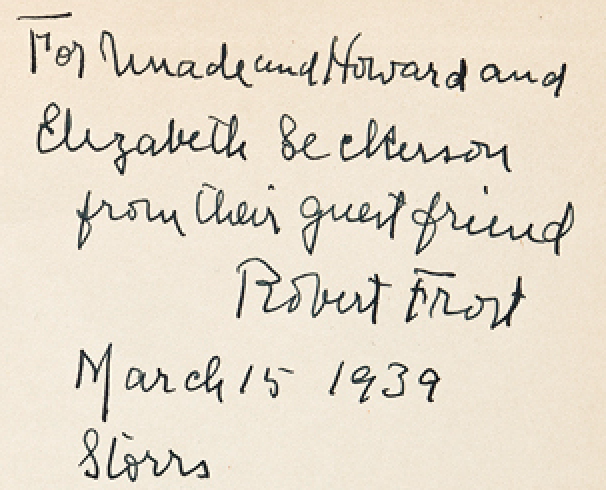 For and Howard and
Elizabeth Seckerson
from their guest friend
Robert Frost
March 15 1939
Storrs